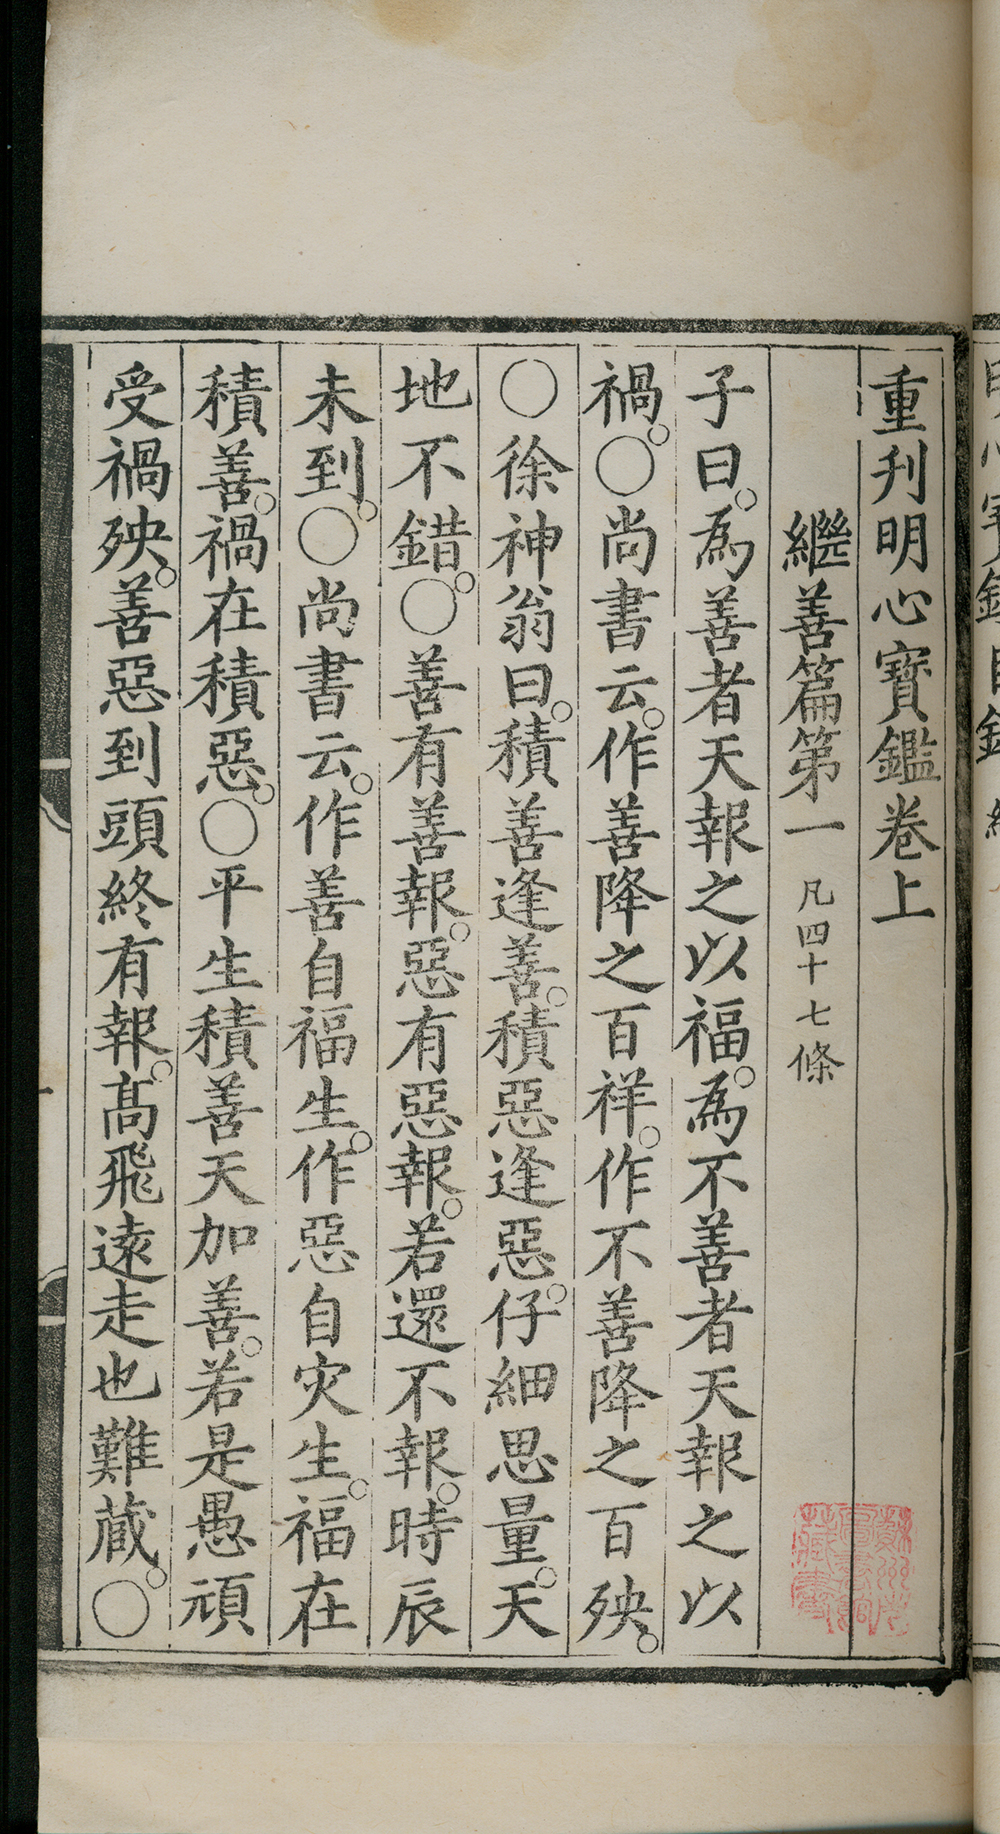 重刋明心寶鑑卷上
繼善篇第一 凡四十七條
子曰。爲善者天報之以福。爲不善者天報之以
禍。○尚書云。作善降之百祥。作不善降之百殃。
○徐神翁曰。積善逢善。積惡逢惡。仔細思量。天
地不錯。○善有善報。惡有惡報。若還不報。時辰
未到。○尚書云。作善自福生。作惡自灾生。福在
積善。禍在積惡。○平生積善天加善。若是愚頑
受禍殃。善惡到頭終有報。髙飛遠走也難蔵。○